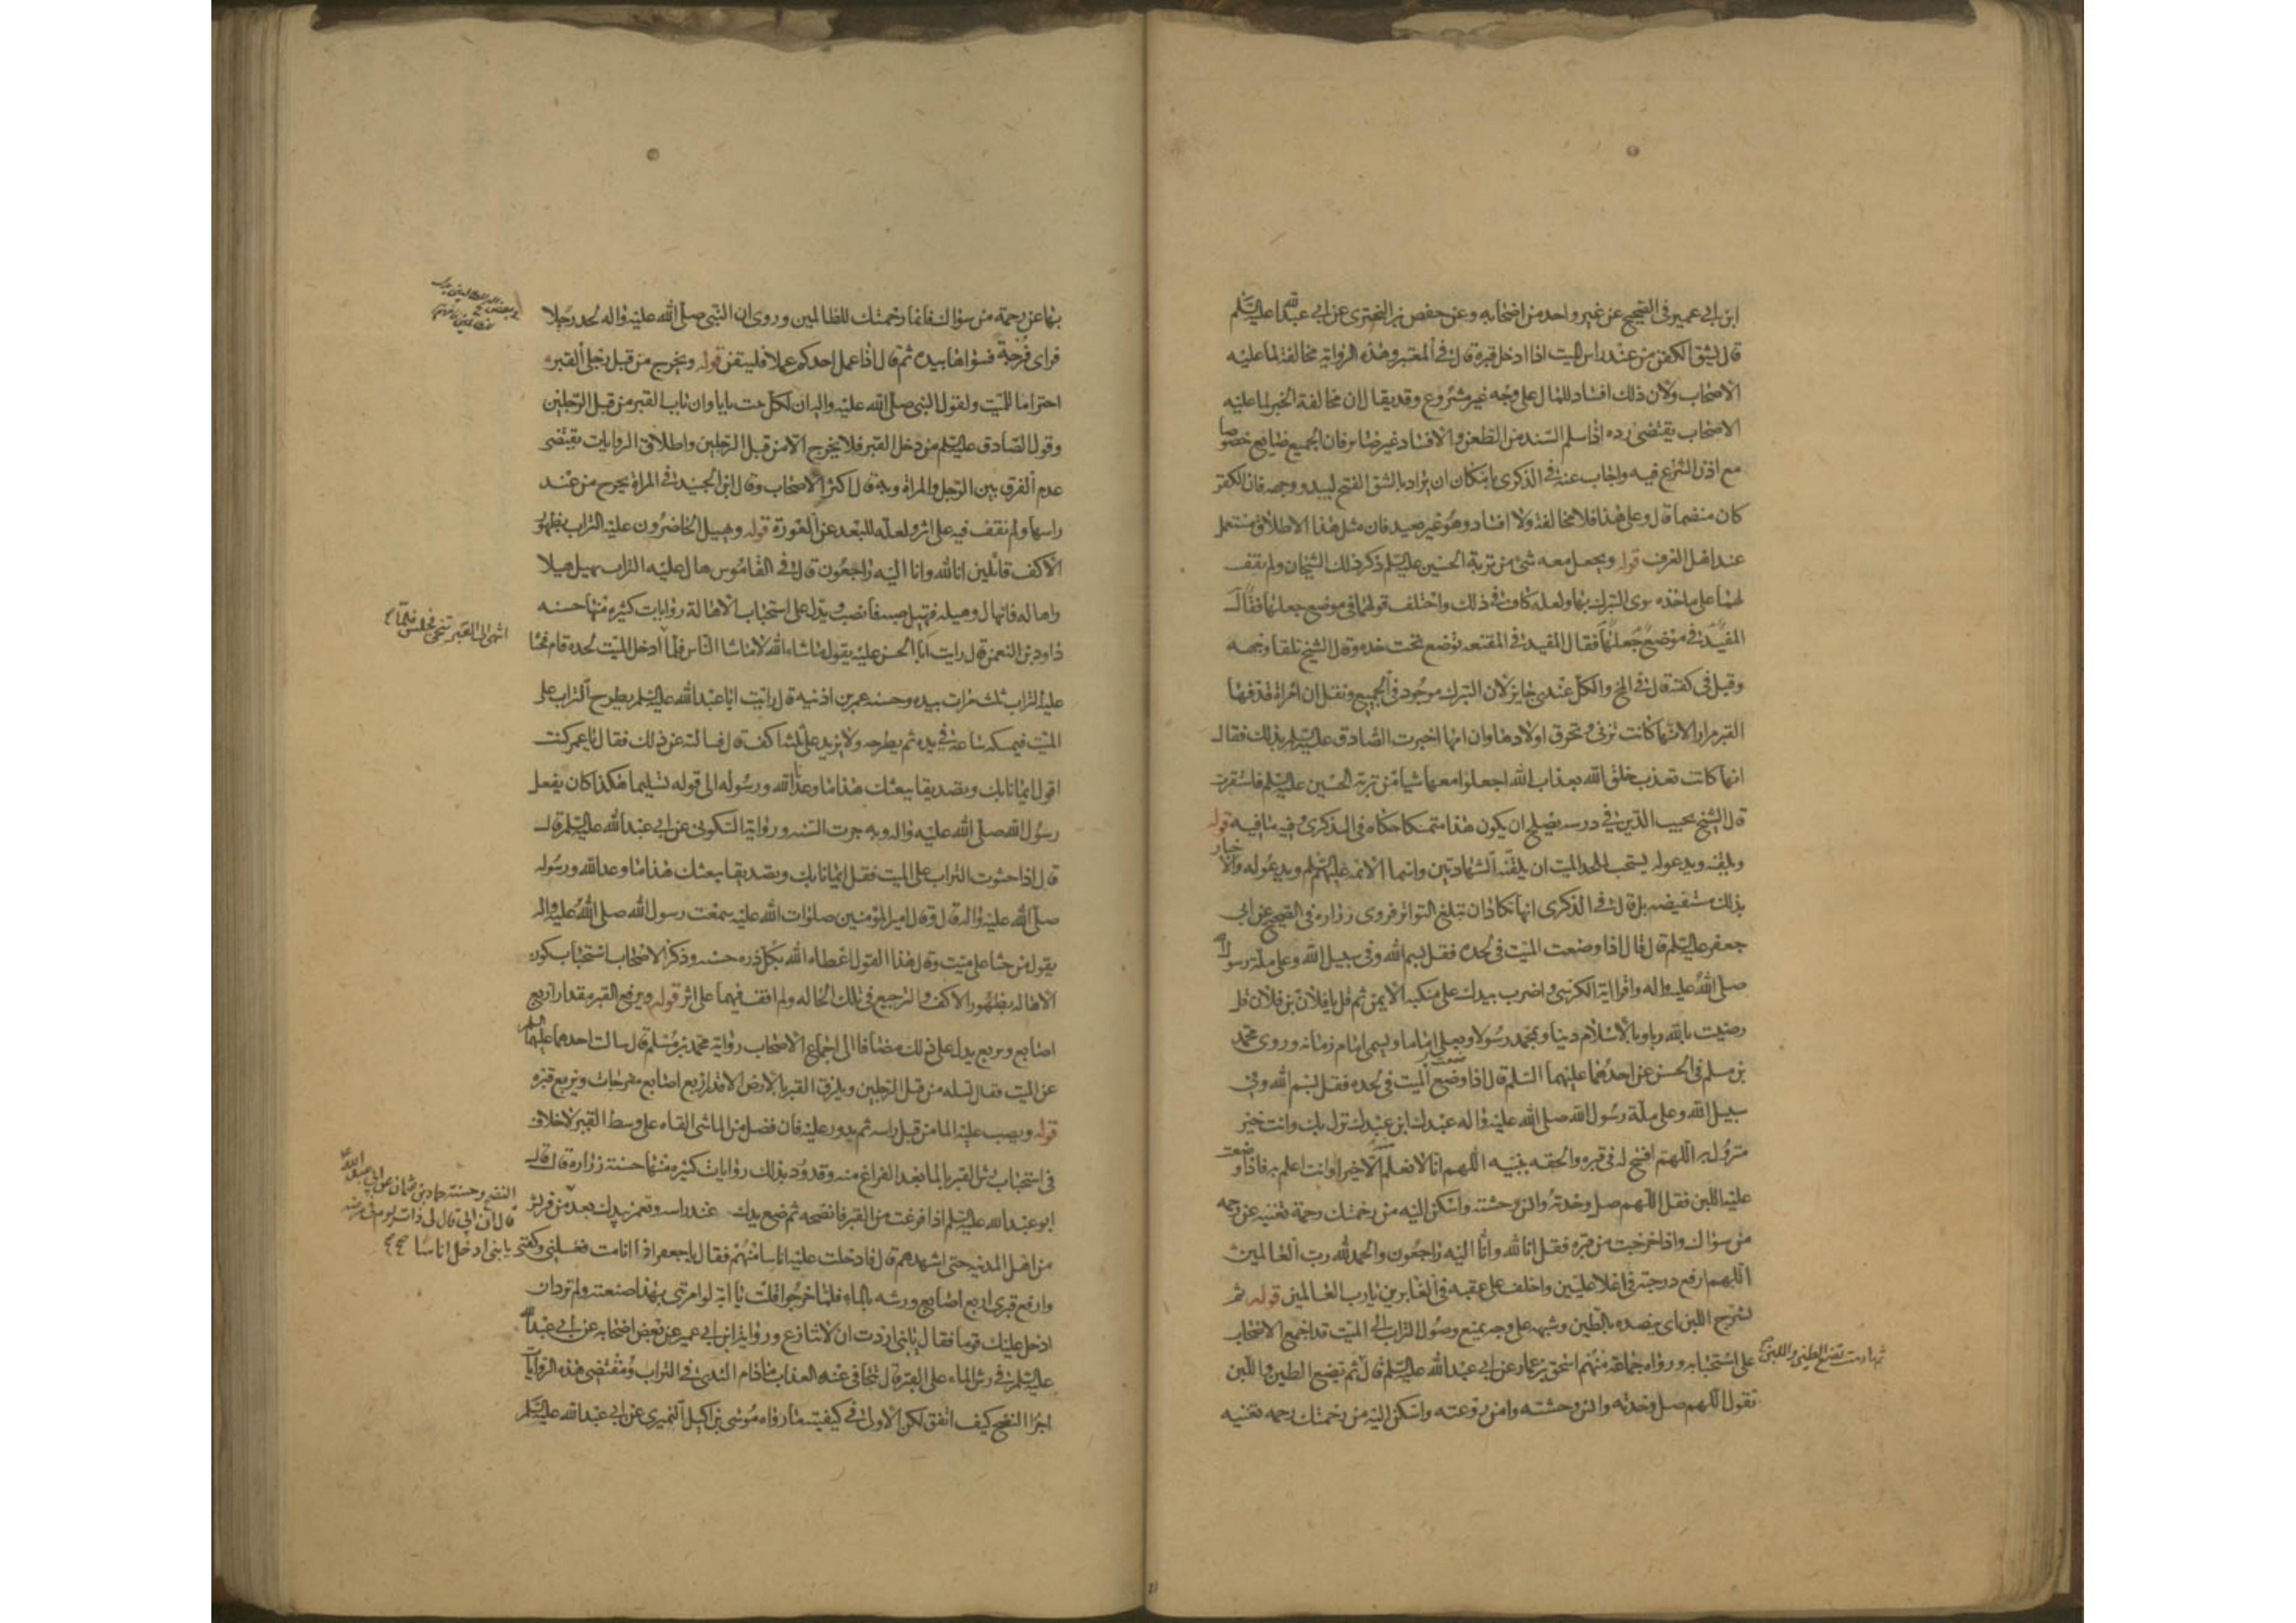 ابن ابي عمير في الصحيح عن غير واحد من اصحابه وعن حفص بن البختري عن ابي عبد الله عليه السلم
قال يشق الكفن من عند راس الميت اذا ادخل قبره قال في المعتبر وهذه الرواية مخالفة لما عليه
الاصحاب ولان ذلك افساد للمال على وجه غير مشروع وقد يقال ان مخالفة الخبر لما عليه
الاصحاب يقتضى رده اذا سلم السند من الطعن والافساد غير ضائر فان الجميع ضايع خصوصا
مع اذن الشرع فيه واجاب عنه في الذكرى بامكان ان يراد بالشق الفتح ليبدو وجهه فان الكفن
كان منضما قال وعلى هذا فلا مخالفة ولا افساد وهو غير بعيد فان مثل هذا الاطلاق مستعمل
عند اهل العرف قوله ويجعل معه شئ من تربة الحسين عليه السلم ذكر ذلك الشيخان ولم نقف
لهما على ماخذه سوى التبرك بها ولعله كاف في ذلك واختلف قولهما في موضع جعلها فقال
المفيد في موضع جعلها فقال المفيد في المقنعه توضع تحت خده وقال الشيخ تلقا وجهه
وقيل في كفنه قال في المخ والكل عندي جايز لان التبرك موجود في الجميع ونقل ان امراة قذفها
القبر مرارا لانها كانت تزني وتحرق اولادها وان امها اخبرت الصادق عليه السلم بذلك فقال
انها كانت تعذب خلق الله بعذاب الله اجعلوا معها شيا من تربة الحسين عليه السلم فاستقرت
قال الشيخ نجيب الدين في درسه يصلح ان يكون هذا متمسكا حكاه في الذكرى وفيه ما فيه قوله
ويلقنه ويدعو له يستحب لملحد الميت ان يلقنه الشهادتين واسما الائمه عليهم السلم ويدعو له والاخبار
بذلك مستفيضه بل قال في الذكرى انها تكاد ان تبلغ التواتر فروى زراره في الصحيح عن ابي
جعفر عليه السلم قال قال اذا وضعت الميت في لحده فقل بسم الله وفي سبيل الله وعلى ملة رسول الله
صلى الله عليه واله واقرا اية الكرسي واضرب بيدك على منكبه الايمن ثم قل يا فلان بن فلان قل
رضيت بالله ربا وبالاسلام دينا وبمحمد رسولا وبعلي اماما ويسمى امام زمانه وروى محمد
بن مسلم في الحسن عن احدهما عليهما السلم قال اذا وضع الميت في لحده فقل بسم الله وفي
سبيل الله وعلى ملة رسول الله صلى الله عليه واله عبدك ابن عبدك نزل بك وانت خير
منزول به اللهم افسح له في قبره والحقه بنبيه اللهم انا لا نعلم الا خيرا وانت اعلم به فاذا وضعت
عليه اللبن فقل اللهم صل وحدته وانس وحشته واسكن اليه من رحمتك رحمة تغنيه عن رحمه
من سواك واذا خرجت من قبره فقل انا لله وانا اليه راجعون والحمد لله رب العالمين
اللهم ارفع درجته في اعلا عليين واخلف على عقبه في الغابرين يا رب العالمين قوله ثم
يشرج اللبن اى ينضده بالطين وشبهه على وجه يمنع وصول التراب الى الميت قد اجمع الاصحاب
على استحبابه ورواه جماعة منهم اسحق بن عمار عن ابي عبد الله عليه السلم قال ثم تضع الطين واللبن
تقول اللهم صل وحدته وانس وحشته وامن روعته واسكن اليه من رحمتك رحمه تغنيه
بها عن رحمة من سواك فانما رحمتك للظالمين وروى ان النبي صلى الله عليه واله لحد رجلا
فراى فرجة فسواها بيده ثم قال اذا عمل احدكم عملا فليتقن قوله ويخرج من قبل رجلى القبر
احتراما للميت ولقول النبي صلى الله عليه واله ان لكل بيت بابا وان باب القبر من قبل الرجلين
وقول الصادق عليه السلم من دخل القبر فلا يخرج الا من قبل الرجلين واطلاق الروايات يقتضى
عدم الفرق بين الرجل والمراة وبه قال اكثر الاصحاب وقال ابن الجنيد في المراة يخرج من عند
راسها ولم نقف فيه على اثر ولعله للبعد عن العورة قوله ويهيل الحاضرون عليه التراب بظهور
الاكف قائلين انا لله وانا اليه راجعون قال في القاموس هال عليه التراب يهيل هيلا
واهاله فانهال وهيله فتهيل صبه فانصب ويدل على استحباب الاهالة روايات كثيرة منها حسنه
داود بن النعمن قال رايت ابا الحسن عليه يقول ماشاء الله لا ماشا الناس فلما ادخل الميت لحده قام فحثا
انتهى الى القبر تنحى فجلس فلما
عليه التراب ثلث مرات بيده وحسنه عمر بن اذينه قال رايت ابا عبد الله عليه السلم يطرح التراب على
الميت فيمسكه ساعة في يده ثم يطرحه ولا يزيد على ثلثة اكف قال فسالته عن ذلك فقال يا عمر كنت
اقول ايمانا بك وتصديقا ببعثك هذا ما وعد الله ورسوله الى قوله تسليما هكذا كان يفعل
رسول الله صلى الله عليه واله وبه جرت السنه ورواية السكوني عن ابي عبد الله عليه السلم قال
قال اذا حثوت التراب على الميت فقل ايمانا بك وتصديقا ببعثك هذا ما وعد الله ورسوله
صلى الله عليه واله قال وقال امير المؤمنين صلوات الله عليه سمعت رسول الله صلى الله عليه واله
يقول من حثا على ميت وقال هذا القول اعطاه الله بكل ذره حسنه وذكر الاصحاب استحباب كون
الاهاله بظهور الاكف والترجيع في تلك الحاله ولم اقف فيهما على اثر قوله ويرفع القبر مقدار اربع
اصابع ويربع يدل على ذلك مضافا الى اجماع الاصحاب رواية محمد بن مسلم قال سالت احدهما عليهما السلم
عن الميت فقال تسله من قبل الرجلين ويلزق القبر بالارض الا قدر اربع اصابع مفرجات وتربع قبره
قوله ويصب عليه الما من قبل راسه ثم يدور عليه فان فضل من الماشى القاه على وسط القبر لا خلاف
في استحباب رش القبر بالما بعد الفراغ منه وقد ورد بذلك روايات كثيره منها حسنة زراره قال قال
ابو عبد الله عليه السلم اذا فرغت من القبر فانضحه ثم ضع يدك عند راسه وتغمز يدك بعد من قريش
النضح وحسنة حماد بن عثمان عن ابي عبد الله
قال ان ابي قال لي ذات يوم في مرضه
يا بنى ادخل اناسا
من اهل المدينه حتى اشهدهم قال فادخلت عليه اناسا منهم فقال يا جعفر اذا انا مت فغسلني وكفني
وارفع قبرى اربع اصابع ورشه بالماء فلما خرجوا قلت يا ابة لو امرتني بهذا صنعته ولم ترد ان
ادخل عليك قوما فقال يا بنى اردت ان لا تنازع ورواية ابن ابي عمير عن بعض اصحابه عن ابي عبد الله
عليه السلم في رش الماء على القبر قال يتجافى عنه العذاب ما دام الندى في التراب ومقتضى هذه الروايات
اجزا النضح كيف اتفق لكن الاولى في كيفيته ما رواه موسى بن اكيل النميري عن ابي عبد الله عليه السلم